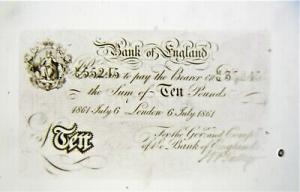 Bank of England
to pay the Bearer on
the Sum of Ten Pounds
1861 July 6 London 6 July 1861
For the Gov. and Comp.
Ten
of the Bank of England